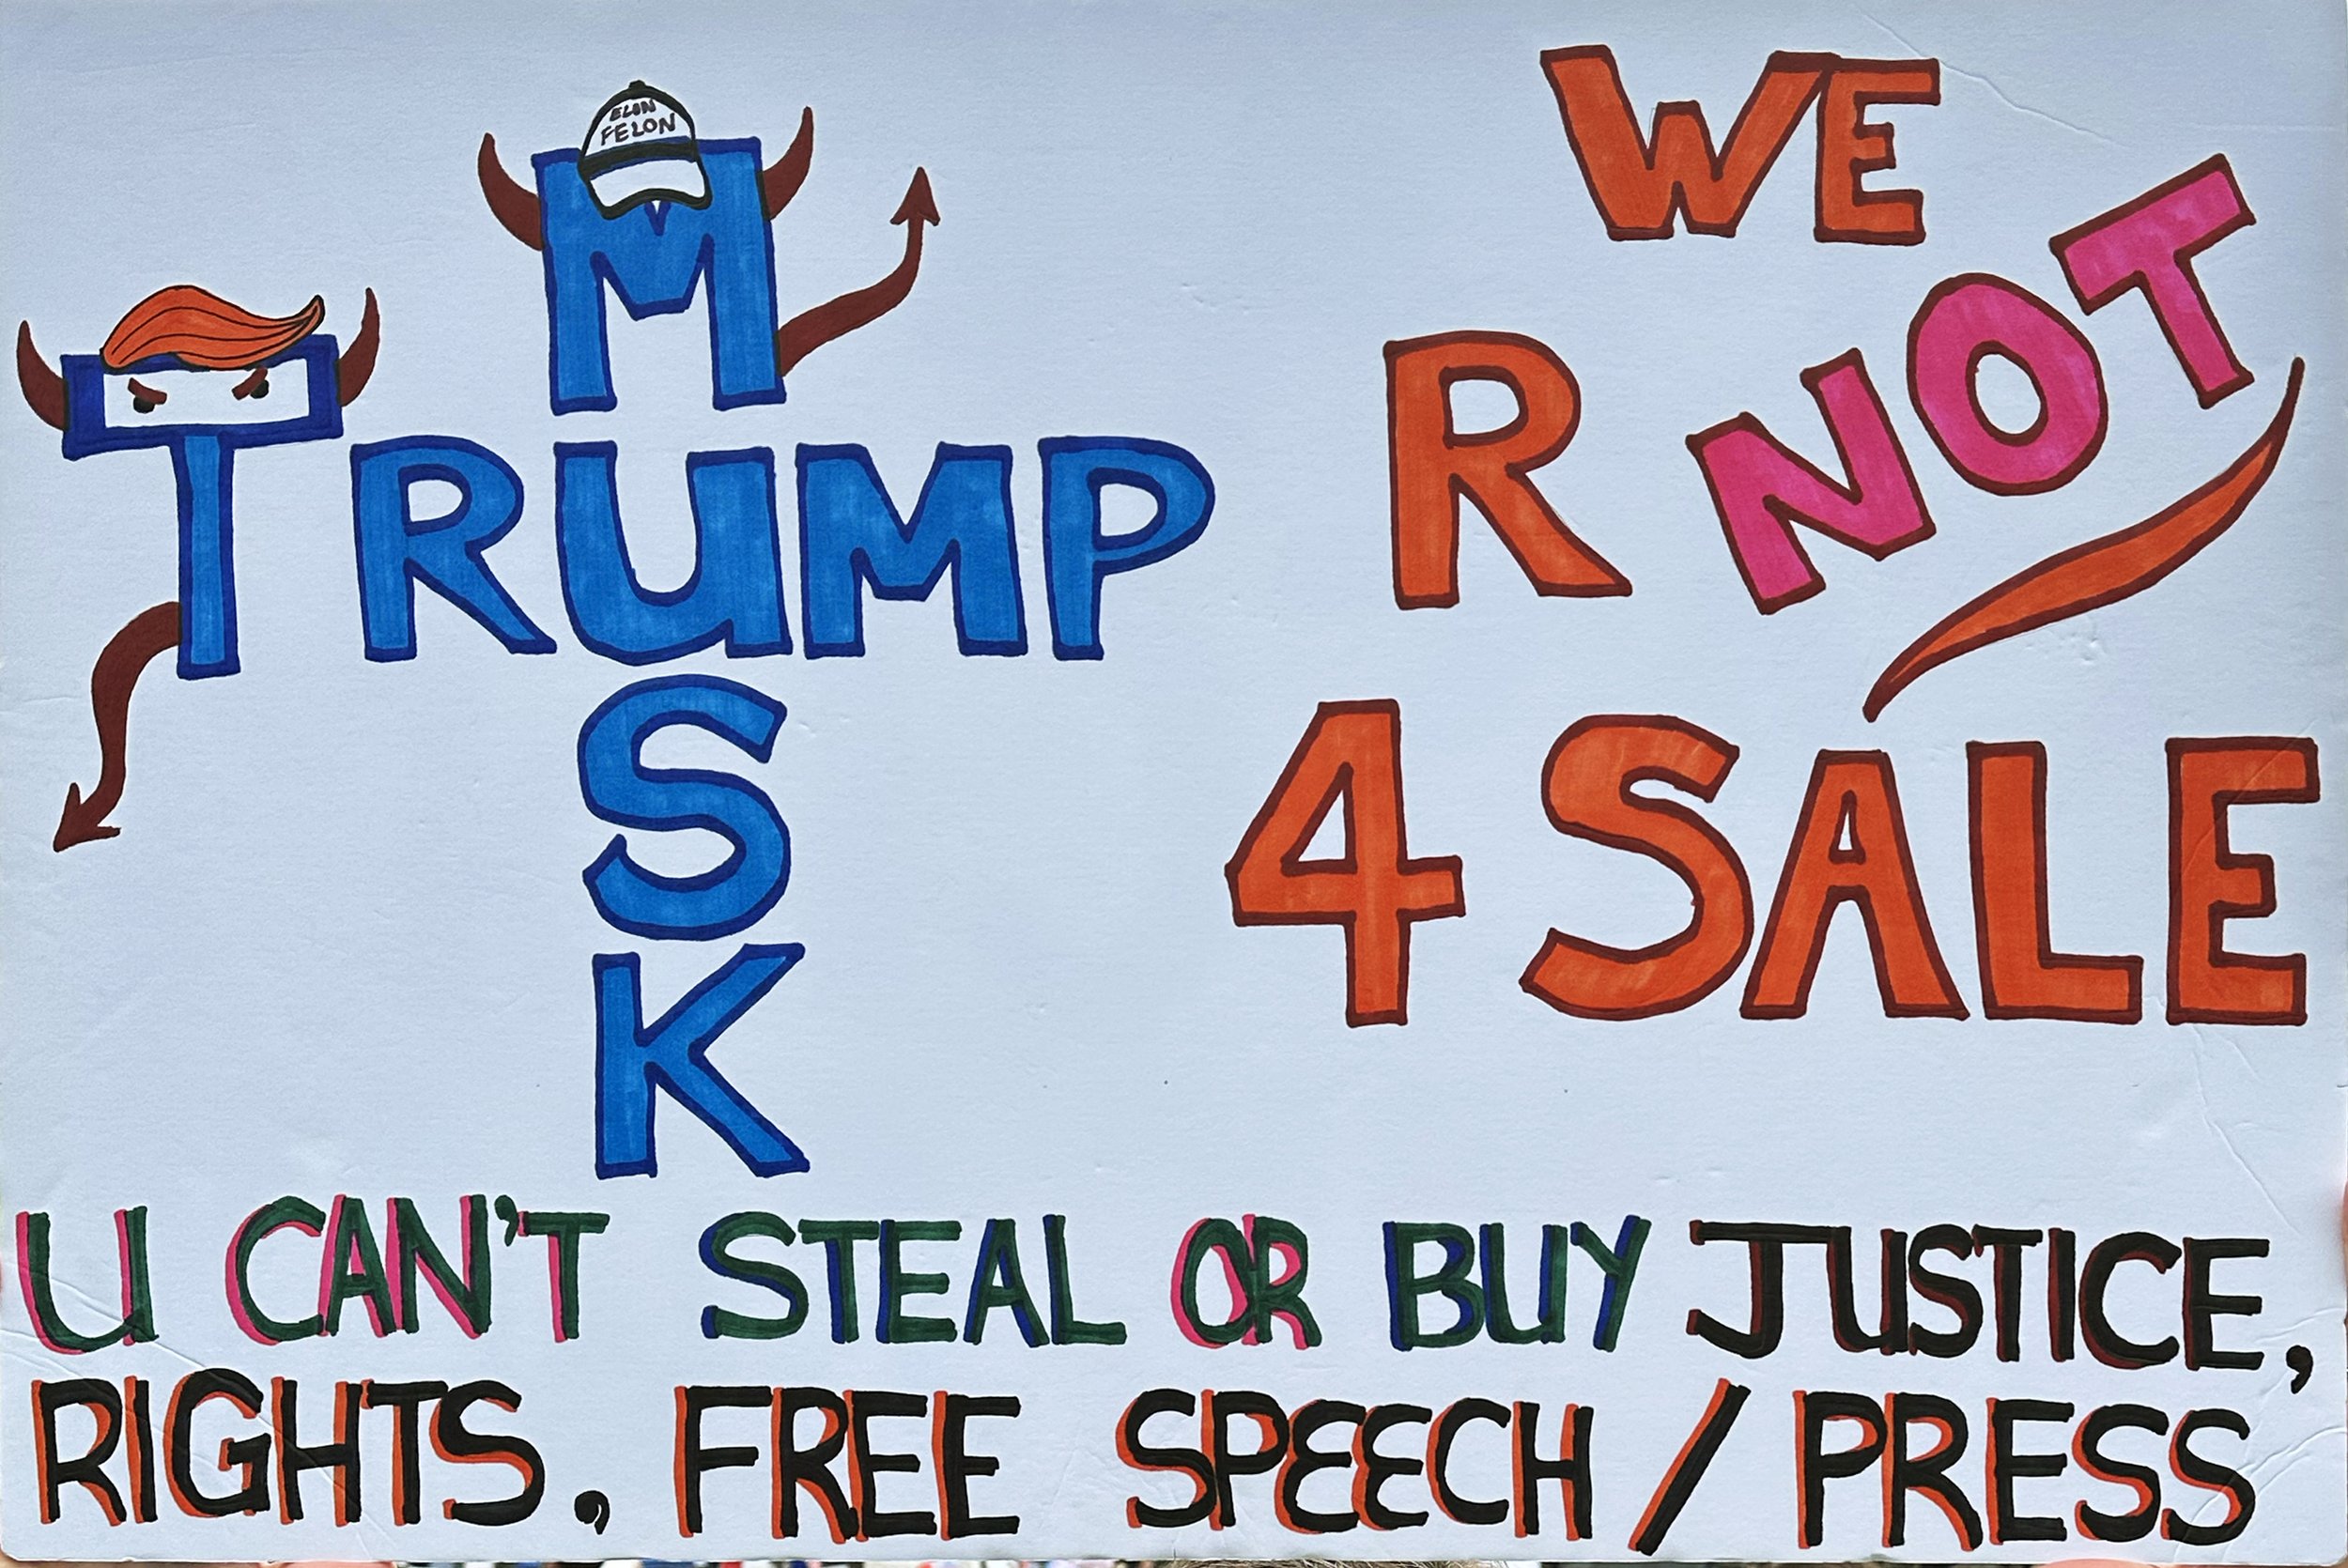 ELON
FELON
M
TRUMP
S
K
WE
R NOT
4 SALE
U CAN'T STEAL OR BUY JUSTICE,
RIGHTS, FREE SPEECH / PRESS